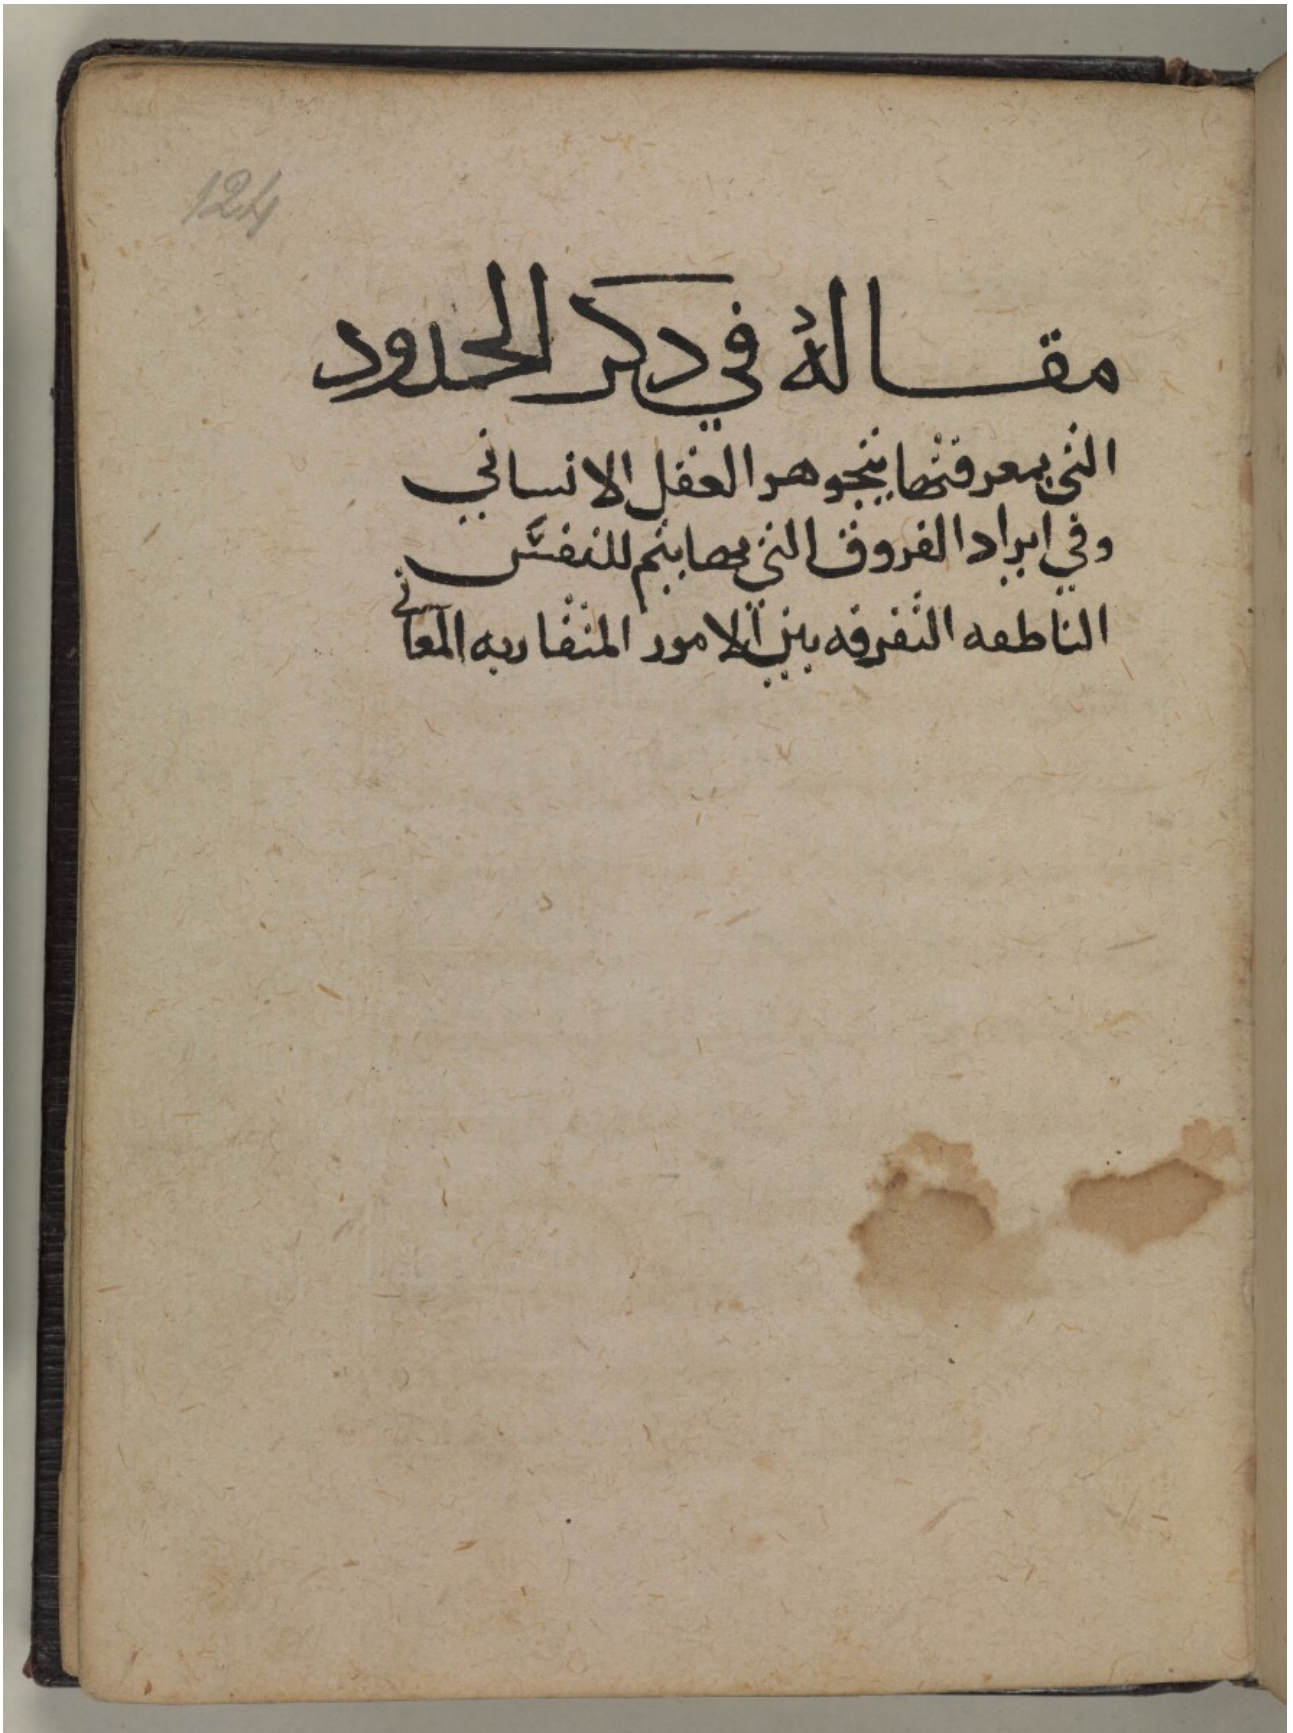 124
مقاله في دكر الحدود
التي بمعرفتها يتجوهر العقل الانساني
وفي ايراد الفروق التي بها يتم للنفس
الناطقه التفرقه بين الامور المتقاربه المعاني